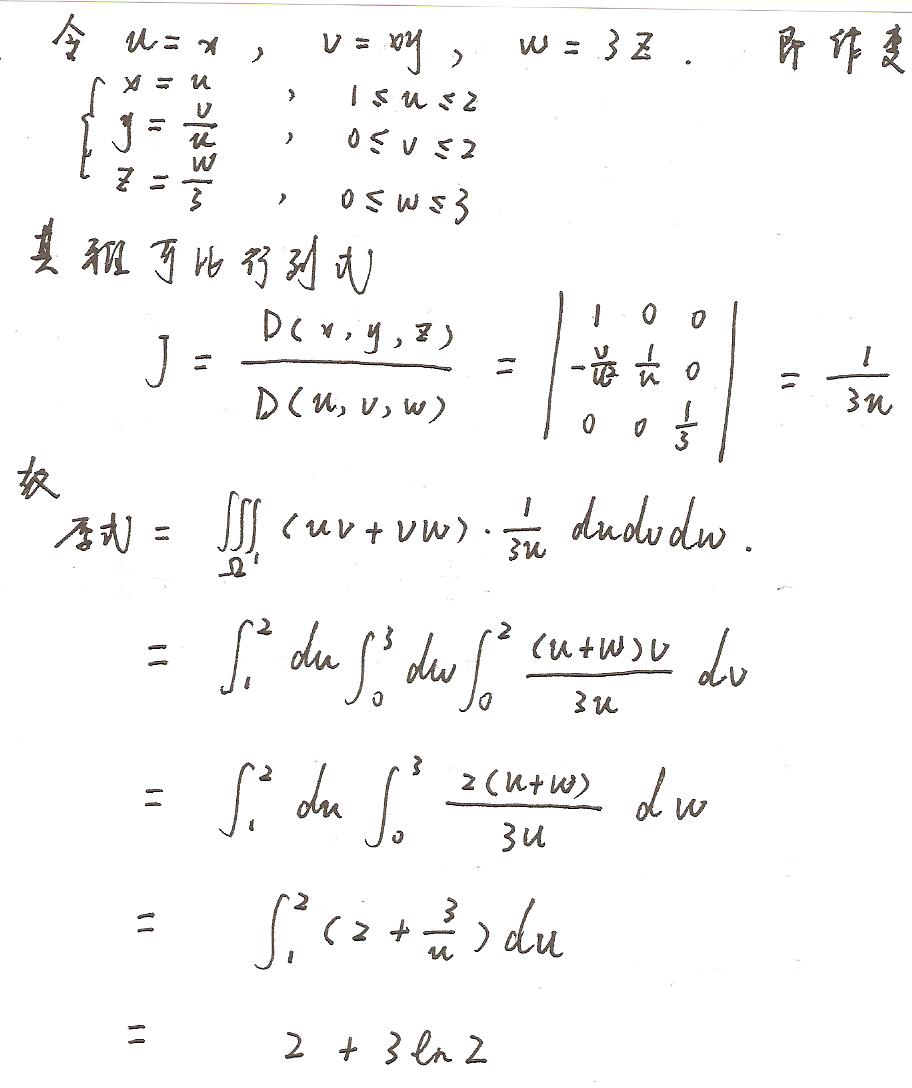 令 u = x , v = xy , w = 3z . 即作变
{ x = u , 1 ≤ u ≤ 2
y = v/u , 0 ≤ v ≤ 2
z = w/3 , 0 ≤ w ≤ 3
其雅可比行列式
J = D(x, y, z) / D(u, v, w) = | 1 0 0 ; -v/u² 1/u 0 ; 0 0 1/3 | = 1/3u
故
原式 = ∭_Ω' (uv + vw) · 1/3u du dv dw .
= ∫₁² du ∫₀³ dw ∫₀² (u+w)v / 3u dv
= ∫₁² du ∫₀³ 2(u+w) / 3u dw
= ∫₁² (2 + 3/u) du
= 2 + 3 ln 2